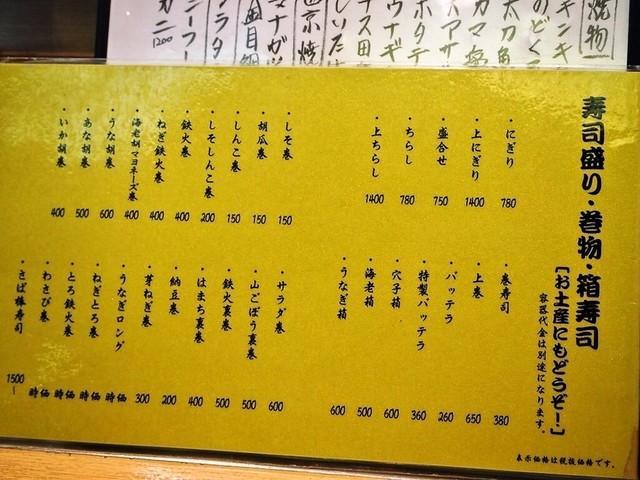 焼物
キンキ
のどく
寿司盛り・巻物・箱寿司
[お土産にもどうぞ!]
容器代金は別途になります。
・にぎり 780
・上にぎり 1400
・盛合せ 750
・ちらし 780
・上ちらし 1400
・しそ巻 150
・胡瓜巻 150
・しんこ巻 150
・しそしんこ巻 200
・鉄火巻 400
・ねぎ鉄火巻 400
・海老胡マヨネーズ巻 400
・うな胡巻 600
・あな胡巻 500
・いか胡巻 400
・巻寿司 380
・上巻 650
・バッテラ 260
・特製バッテラ 360
・穴子箱 600
・海老箱 500
・うなぎ箱 600
・サラダ巻 600
・山ごぼう裏巻 500
・鉄火裏巻 500
・はまち裏巻 400
・納豆巻 200
・芽ねぎ巻 300
・うなぎロング 時価
・ねぎとろ巻 時価
・とろ鉄火巻 時価
・わさび巻 時価
・さば棒寿司 1500〜
表示価格は税抜価格です。